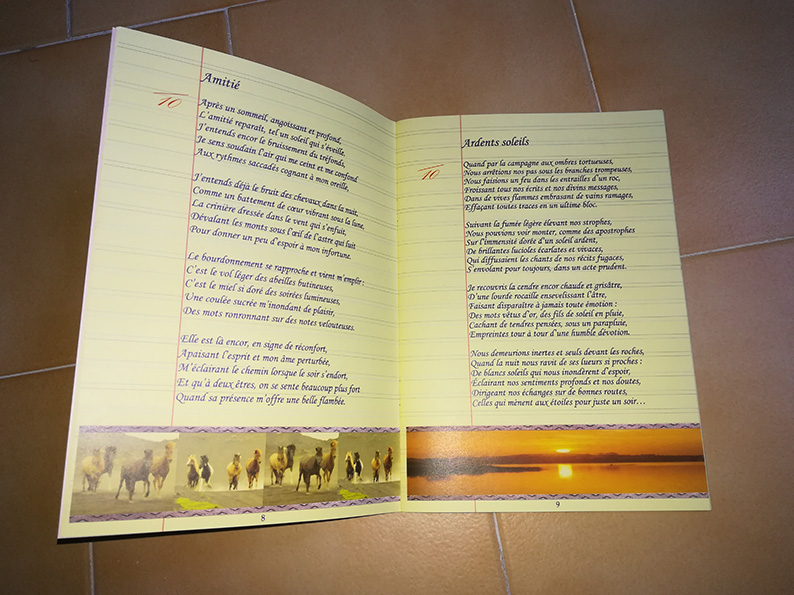 Amitié
10
Après un sommeil, angoissant et profond,
L'amitié reparaît, tel un soleil qui s'éveille,
J'entends encor le bruissement du tréfonds,
Je sens soudain l'air qui me ceint et me confond
Aux rythmes saccadés cognant à mon oreille,
J'entends déjà le bruit des chevaux dans la nuit,
Comme un battement de cœur vibrant sous la lune,
La crinière dressée dans le vent qui s'enfuit,
Dévalant les monts sous l'œil de l'astre qui luit
Pour donner un peu d'espoir à mon infortune.
Le bourdonnement se rapproche et vient m'emplir :
C'est le vol léger des abeilles butineuses,
C'est le miel si doré des soirées lumineuses,
Une coulée sucrée m'inondant de plaisir,
Des mots ronronnant sur des notes velouteuses.
Elle est là encor, en signe de réconfort,
Apaisant l'esprit et mon âme perturbée,
M'éclairant le chemin lorsque le soir s'endort,
Et qu'à deux êtres, on se sente beaucoup plus fort
Quand sa présence m'offre une belle flambée.
8
Ardents soleils
10
Quand par la campagne aux ombres tortueuses,
Nous arrêtions nos pas sous les branches trompeuses,
Nous faisions un feu dans les entrailles d'un roc,
Froissant tous nos écrits et nos divins messages,
Dans de vives flammes embrasant de vains ramages,
Effaçant toutes traces en un ultime bloc.
Suivant la fumée légère élevant nos strophes,
Nous pouvions voir monter, comme des apostrophes
Sur l'immensité dorée d'un soleil ardent,
De brillantes lucioles écarlates et vivaces,
Qui diffusaient les chants de nos récits fugaces,
S'envolant pour toujours, dans un acte prudent.
Je recouvris la cendre encor chaude et grisâtre,
D'une lourde rocaille ensevelissant l'âtre,
Faisant disparaître à jamais toute émotion :
Des mots vêtus d'or, des fils de soleil en pluie,
Cachant de tendres pensées, sous un parapluie,
Empreintes tour à tour d'une humble dévotion.
Nous demeurions inertes et seuls devant les roches,
Quand la nuit nous ravit de ses lueurs si proches :
De blancs soleils qui nous inondèrent d'espoir,
Éclairant nos sentiments profonds et nos doutes,
Dirigeant nos échanges sur de bonnes routes,
Celles qui mènent aux étoiles pour juste un soir...
9